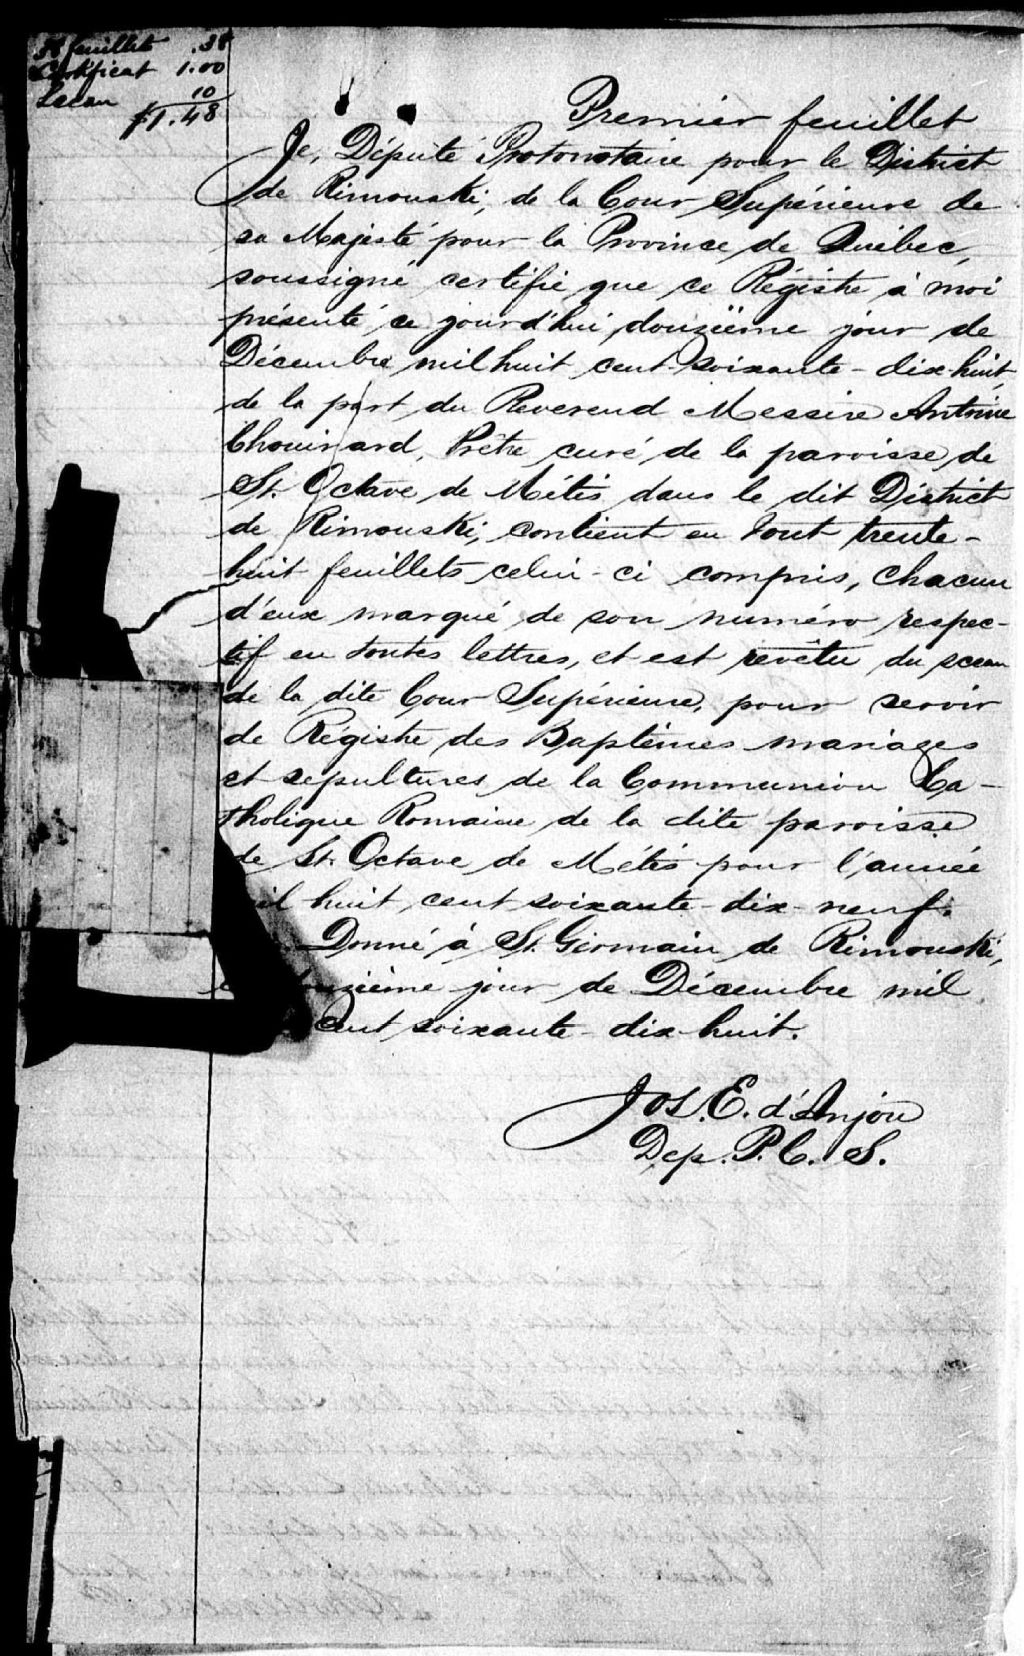 38 feuillets .38
Certificat 1.00
Sceau 10
$1.48
Premier feuillet
Je, Député Protonotaire pour le District
de Rimouski, de la Cour Supérieure de
sa Majesté pour la Province de Québec,
soussigné certifie que ce Régistre à moi
présenté ce jourd'hui douzième jour de
Décembre mil huit cent soixante-dix-huit,
de la part du Reverend Messire Antoine
Chouinard, Prêtre curé de la paroisse de
St. Octave de Métis dans le dit District
de Rimouski, contient en tout trente-
huit feuillets celui-ci compris, chacun
d'eux marqué de son numéro respec-
tif en toutes lettres, et est revêtu du sceau
de la dite Cour Supérieure, pour servir
de Régistre des Baptêmes mariages
et sepultures de la Communion Ca-
tholique Romaine de la dite paroisse
de St. Octave de Métis pour l'année
il huit cent soixante-dix-neuf.
Donné à St. Germain de Rimouski,
uzième jour de Décembre mil
cent soixante-dix-huit.
Jos. E. d'Anjou
Dep. P. C. S.